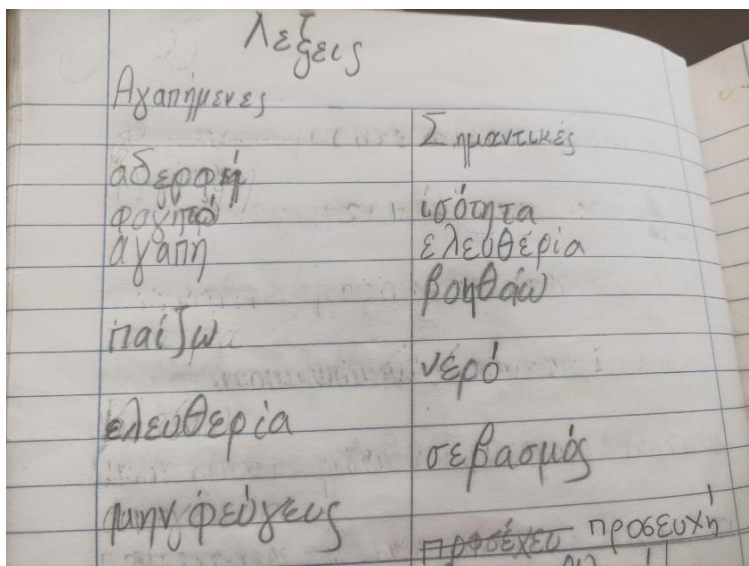 λεξεις
Αγαπήμενες
αδερφή
φαγητό
άγαπή
παίζω
ελευθερία
μην φεύγεις
Σημαντικές
ισότητα
ελευθερία
βοηθάω
νερό
σεβασμός
προσέχει προσευχή